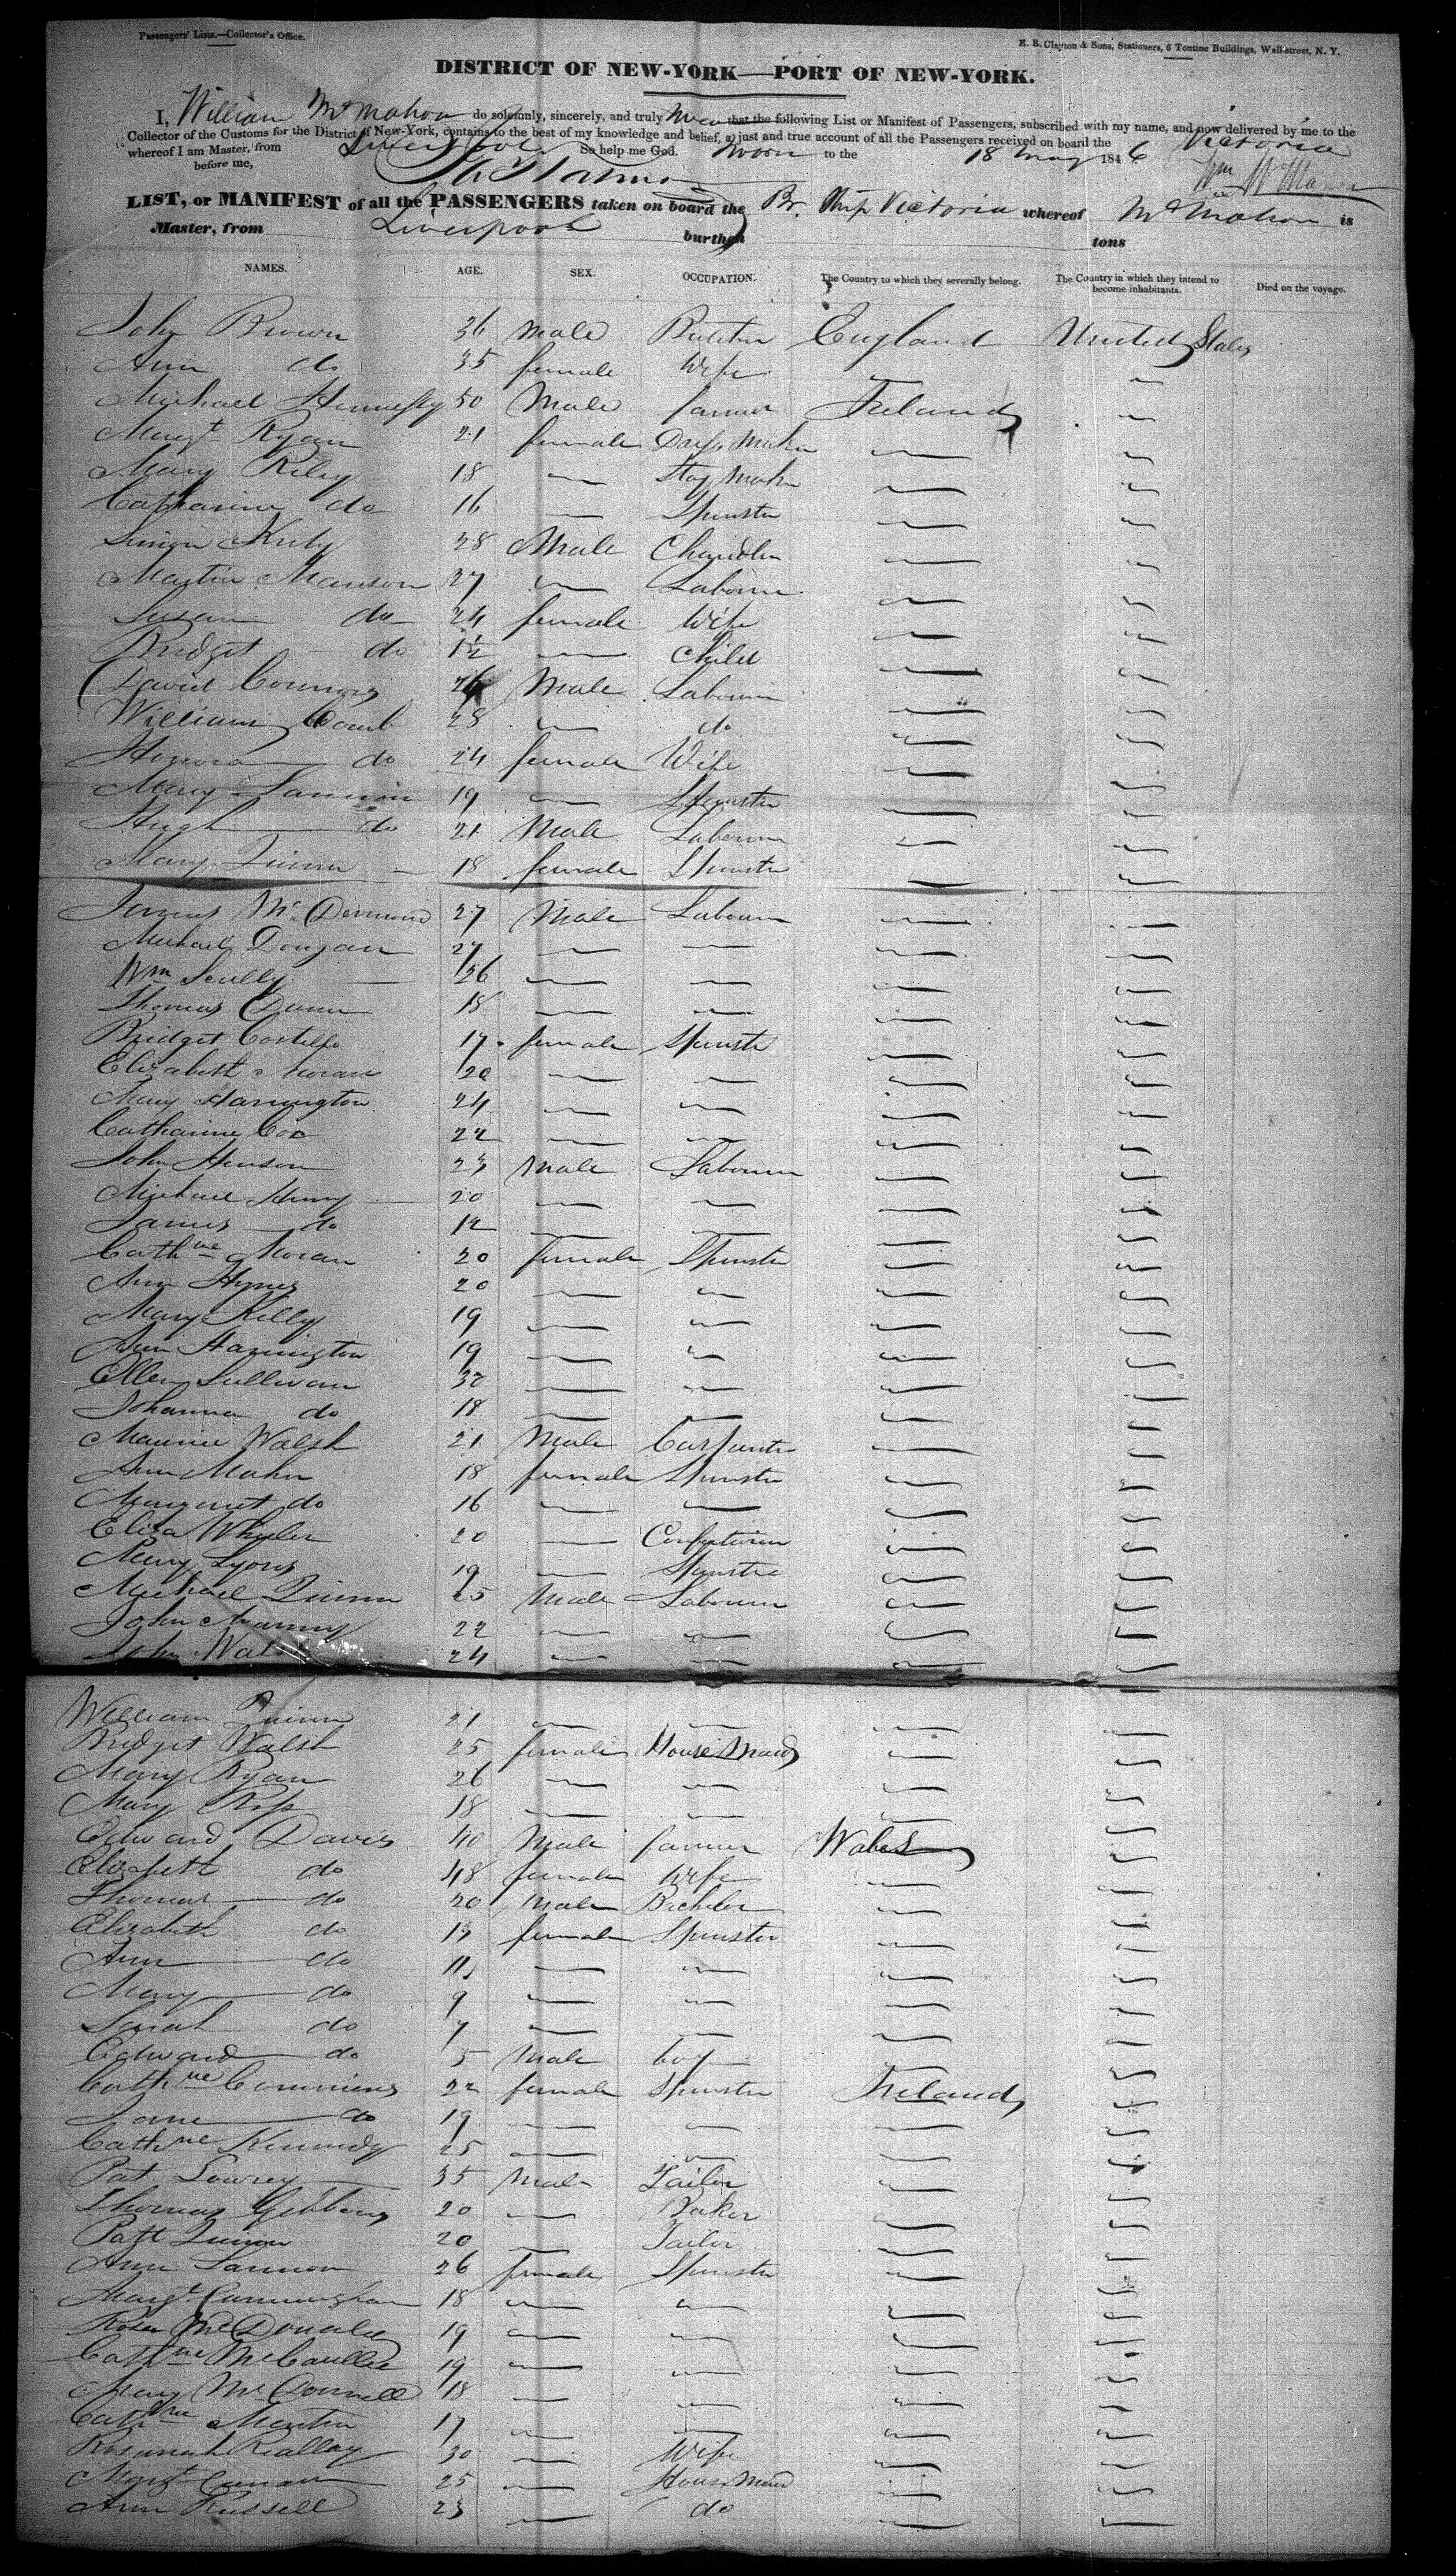 Passengers' Lists.—Collector's Office.
E. B. Clayton & Sons, Stationers, 6 Tontine Buildings, Wall-street, N. Y.
DISTRICT OF NEW-YORK—PORT OF NEW-YORK.
I, William McMahon do solemnly, sincerely, and truly swear that the following List or Manifest of Passengers, subscribed with my name, and now delivered by me to the
Collector of the Customs for the District of New-York, contains to the best of my knowledge and belief, a just and true account of all the Passengers received on board the Victoria
whereof I am Master, from Liverpool So help me God.
before me, Sworn to the 18 May 1846 Wm McMahon
LIST, or MANIFEST of all the PASSENGERS taken on board the Br. Ship Victoria whereof McMahon is
Master, from Liverpool burthen tons
NAMES. AGE. SEX. OCCUPATION. The Country to which they severally belong. The Country in which they intend to become inhabitants. Died on the voyage.
John Brown 36 male Butcher England United States
Ann do 35 female Wife
Michael Hennessy 50 Male farmer Ireland
Margt Ryan 21 female Dress Maker
Mary Riley 18 — Stay Maker —
Catharine do 16 — Spinster —
Simon 28 Male Chandler —
Martin Manson 27 — Labourer —
Susan do 24 female Wife —
Bridget do 1½ — Child —
David Connors 26 Male Labourer —
William Comb 28 — do —
Honora do 24 female Wife —
Mary Lannon 19 — Spinster —
Hugh do 21 Male Labourer —
Mary Quinn 18 female Spinster —
James McDermond 27 Male Labourer —
Michael Dougan 27 — — —
Wm Scully 26 — — —
Thomas Dunn 18 — — —
Bridget Costello 17 female Spinster —
Elizabeth Moran 20 — — —
Mary Harrington 24 — — —
Catharine Cox 22 — — —
John Henson 23 Male Labourer —
Michael Henry 20 — — —
James do 12 — — —
Cathne Moran 20 female Spinster —
Ann Hynes 20 — — —
Mary Kelly 19 — — —
Ann Harrington 19 — — —
Ellen Sullivan 30 — — —
Johanna do 18 — — —
Maurice Walsh 21 Male Carpenter —
Ann Mahon 18 female Spinster —
Margaret do 16 — — —
Eliza Wheeler 20 — —
Mary Lyons 19 — Spinster —
Michael Quinn 25 Male Labourer —
John 22 — — —
John Walsh 24 — — —
William Quinn 21 — — —
Bridget Walsh 25 female House Maid —
Mary Ryan 26 — — —
Mary Ross 18 — — —
Edward Davis 40 Male farmer Wales
Elizabeth do 48 female Wife —
Thomas do 20 Male Bachelor —
Elizabeth do 13 female Spinster —
Ann do 11 — — —
Mary do 9 — — —
Sarah do 7 — — —
Edward do 5 Male boy —
Cathne Commins 22 female Spinster Ireland
Jane do 19 — — —
Cathne Kennedy 25 — — —
Pat Lowrey 35 Male Tailor —
Thomas Gibbons 20 — Baker —
Patt Quinn 20 — Tailor —
Ann Lannon 26 female Spinster —
Margt Cunningham 18 — — —
Rosa McDonald 19 — — —
Cathne McCaullie 19 — — —
Mary McDonnell 18 — — —
Cathne Martin 17 — — —
Rosannah 30 — Wife —
Margt Curran 25 — House Maid —
Ann Russell 23 — do —